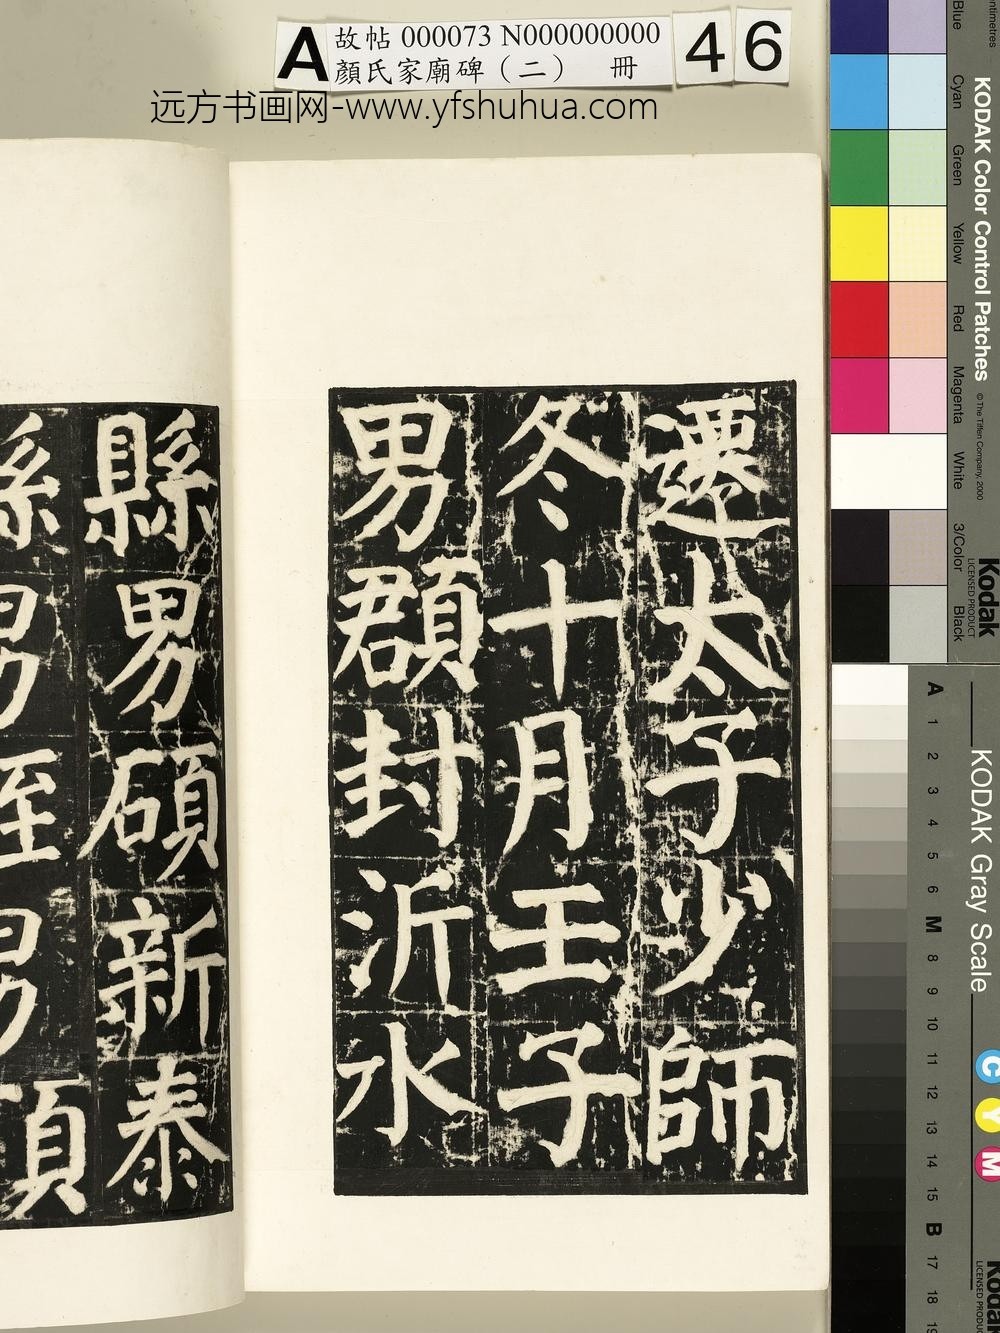 A
故帖 000073 N000000000
顏氏家廟碑（二） 冊
4 6
远方书画网-www.yfshuhua.com
遷太子少師
冬十月王子
男頵封沂水
縣男碩新泰
KODAK Color Control Patches
© The Tiffen Company, 2000
Kodak
LICENSED PRODUCT
Blue
Cyan
Green
Yellow
Red
Magenta
White
3/Color
Black
KODAK Gray Scale
A 1 2 3 4 5 6 M 8 9 10 11 12 13 14 15 B 17 18 19
C
Y
M
Kodak
LICENSED PRODUCT